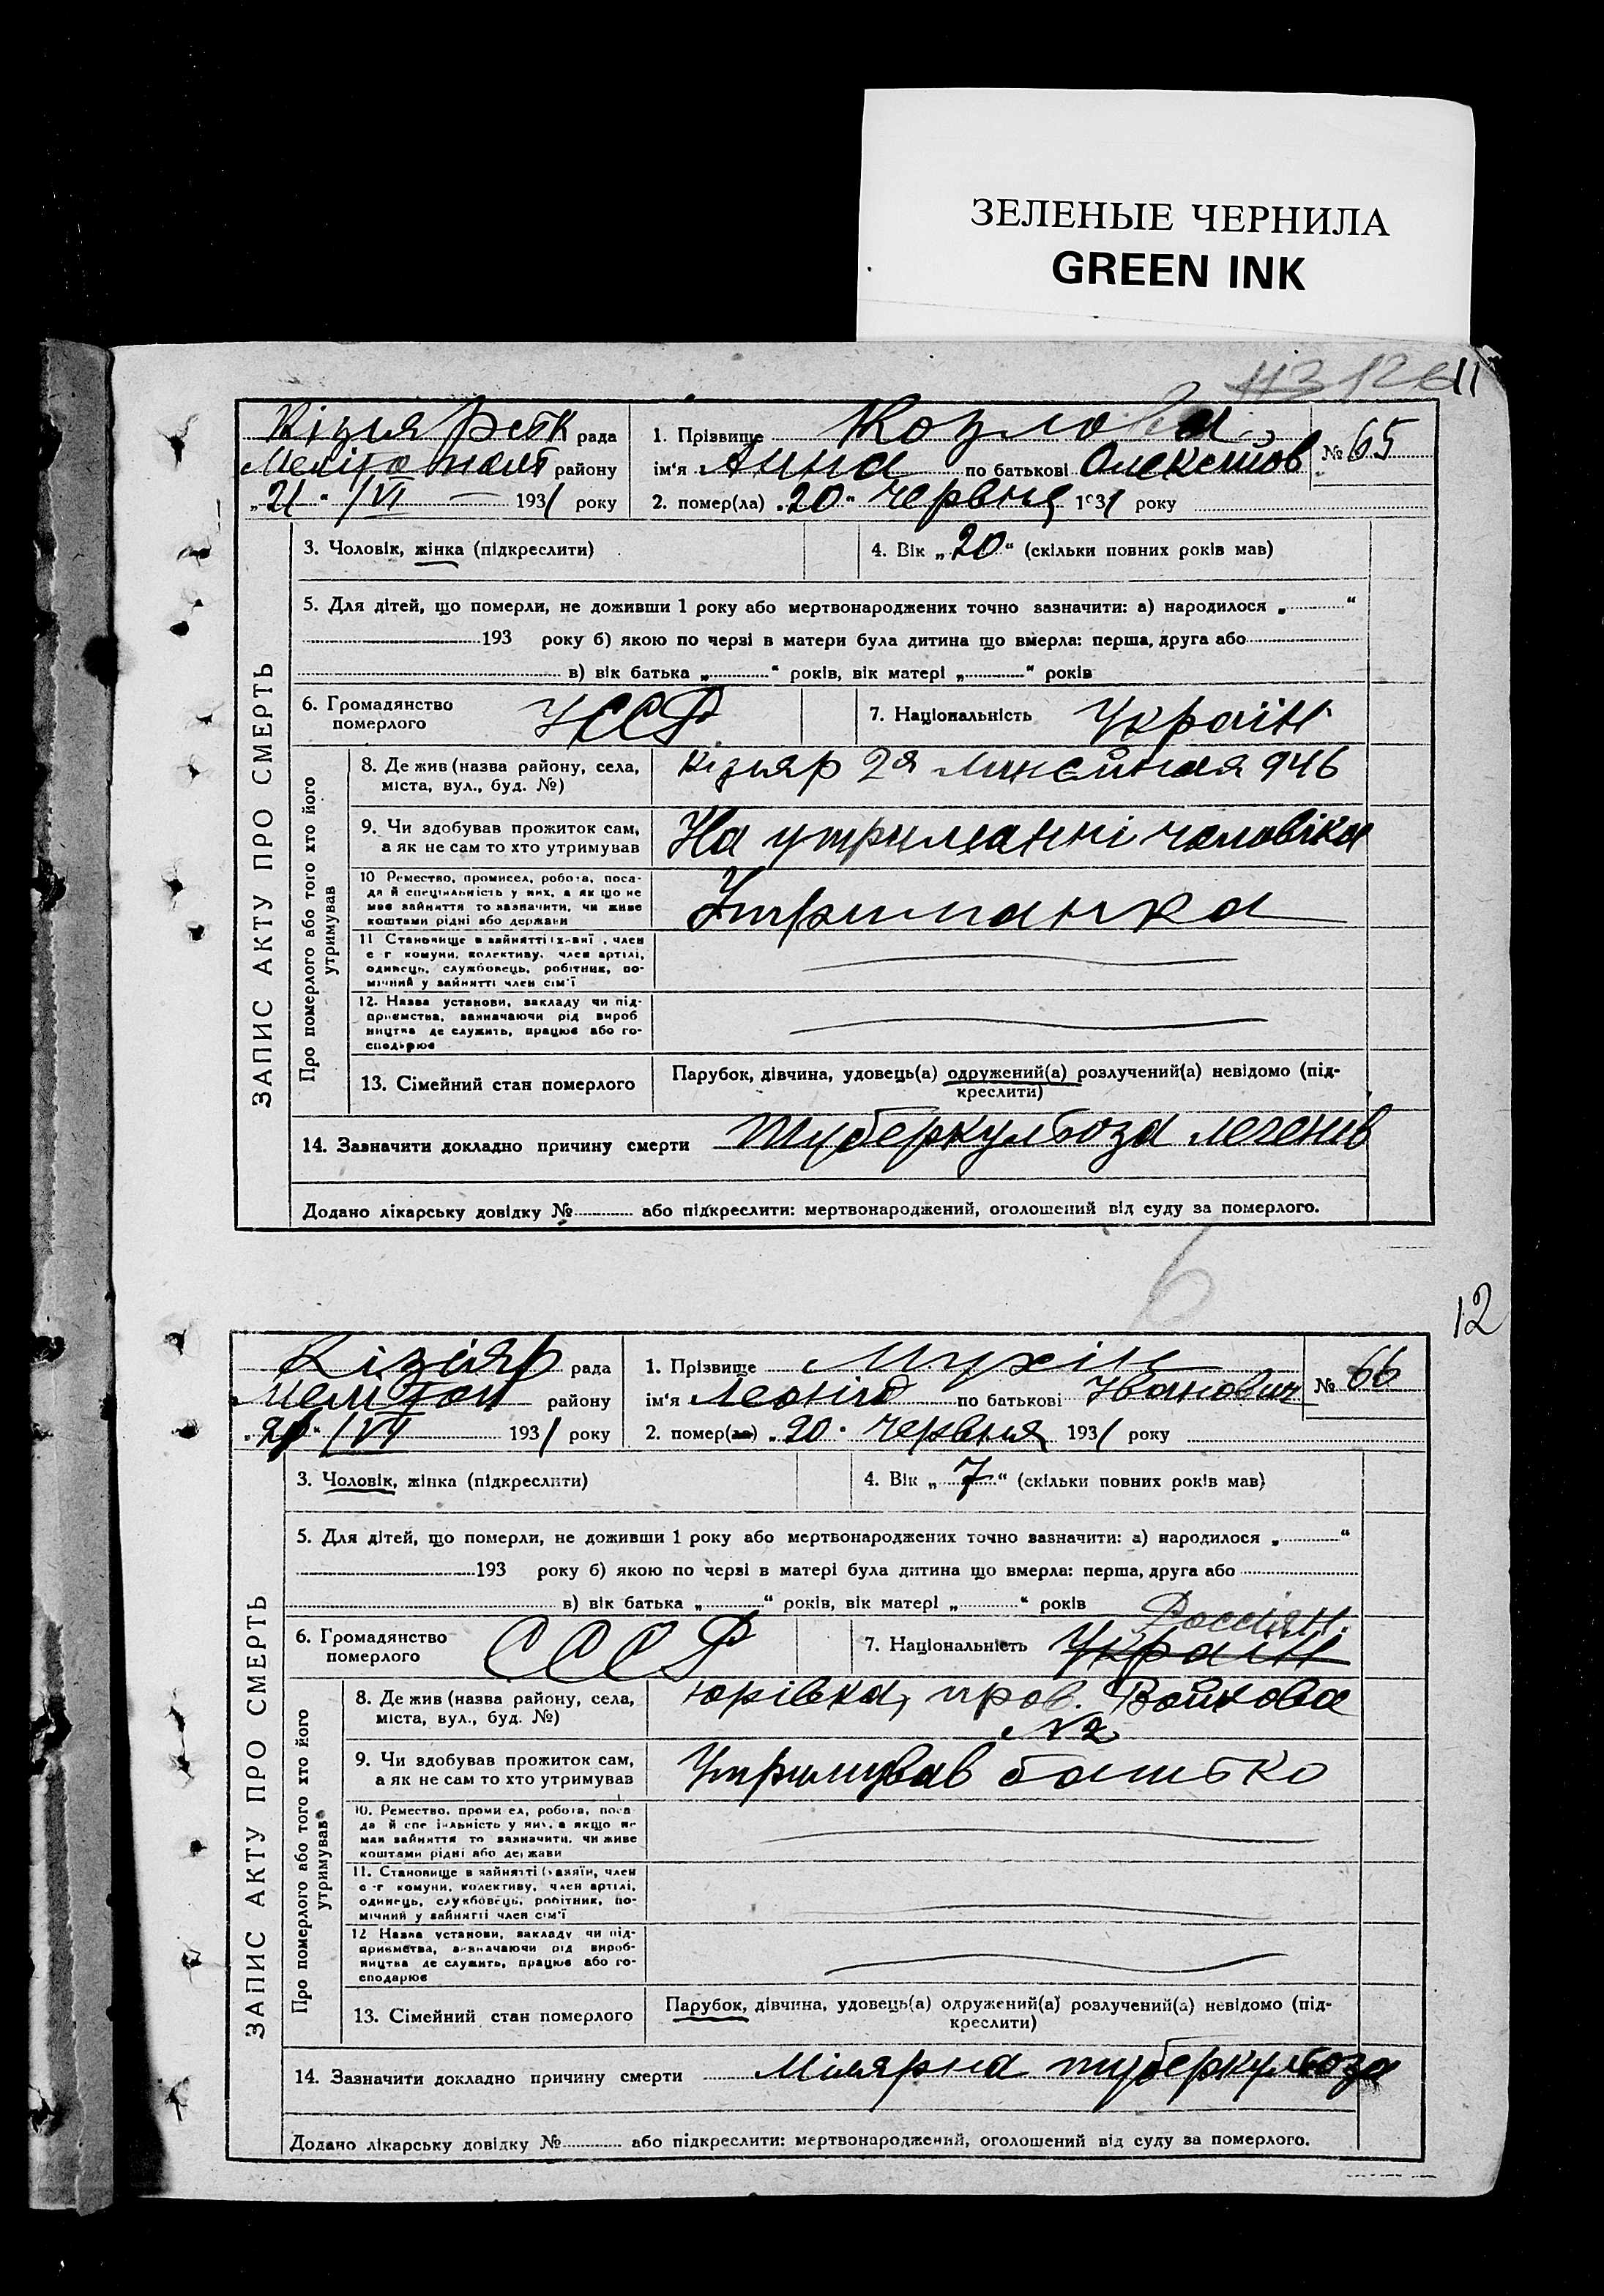 ЗЕЛЕНЫЕ ЧЕРНИЛА
GREEN INK
113 126 11
Кізіярськ рада
Меліто пільс району
„21“ /VI 1931 року
1. Прізвище Козлова
ім'я Анна по батькові Олексійов
№ 65
2. помер(ла) „20“ червня 1931 року
3. Чоловік, жінка (підкреслити)
4. Вік „20“ (скільки повних років мав)
5. Для дітей, що померли, не доживши 1 року або мертвонароджених точно зазначити: а) народилося „ “
193 року б) якою по черзі в матери була дитина що вмерла: перша, друга або
в) вік батька „ “ років, вік матері „ “ років
6. Громадянство
померлого
УССР
7. Національність Україн
ЗАПИС АКТУ ПРО СМЕРТЬ
Про померлого або того хто його
утримував
8. Де жив (назва району, села,
міста, вул., буд. №)
Кізіяр 2я Линєйная 946
9. Чи здобував прожиток сам,
а як не сам то хто утримував
На утриманні чоловіка
10 Ремество, промисел, робота, поса-
да й спеціяльність у них, а як що не
має зайняття то зазначити, чи живе
коштами рідні або держави
Утриманка
11 Становище в зайнятті , член
с-г комуни, колективу, член артілі,
одинець, службовець, робітник, по-
мічний у зайнятті член сім'ї
12. Назва установи, закладу чи під-
приємства, зазначаючи рід вироб
ництва де служить, працює або го-
сподарює
13. Сімейний стан померлого
Парубок, дівчина, удовець(а) одружений(а) розлучений(а) невідомо (під-
креслити)
14. Зазначити докладно причину смерти туберкульоза легенів
Додано лікарську довідку № або підкреслити: мертвонароджений, оголошений від суду за померлого.
6
12
Кізіяр рада
Меліtоп району
„21“ /VI 1931 року
1. Прізвище Мухін
ім'я Леонід по батькові Іванович
№ 66
2. помер(ла) „20“ червня 1931 року
3. Чоловік, жінка (підкреслити)
4. Вік „7“ (скільки повних років мав)
5. Для дітей, що померли, не доживши 1 року або мертвонароджених точно зазначити: а) народилося „ “
193 року б) якою по черзі в матері була дитина що вмерла: перша, друга або
в) вік батька „ “ років, вік матері „ “ років
6. Громадянство
померлого
СССР
Россіян.
7. Національність Україн
ЗАПИС АКТУ ПРО СМЕРТЬ
Про померлого або того хто його
утримував
8. Де жив (назва району, села,
міста, вул., буд. №)
Юрівка, пров. Войкова
№2
9. Чи здобував прожиток сам,
а як не сам то хто утримував
Утримував батько
10. Ремество, проми ел, робота, поса
да й спе іяльність у них, а якщо не
має зайняття то зазначити, чи живе
коштами рідні або держави
11. Становище в зайнятті (хазяїн, член
с-г комуни, колективу, член артілі,
одинець, службовець, робітник, по-
мічний у зайнятті член сім'ї
12 Назва установи, закладу чи під-
приємства, зазначаючи рід вироб-
ництва де служить, працює або го-
сподарює
13. Сімейний стан померлого
Парубок, дівчина, удовець(а) одружений(а) розлучений(а) невідомо (під-
креслити)
14. Зазначити докладно причину смерти Мілярна туберкульоза
Додано лікарську довідку № або підкреслити: мертвонароджений, оголошений від суду за померлого.